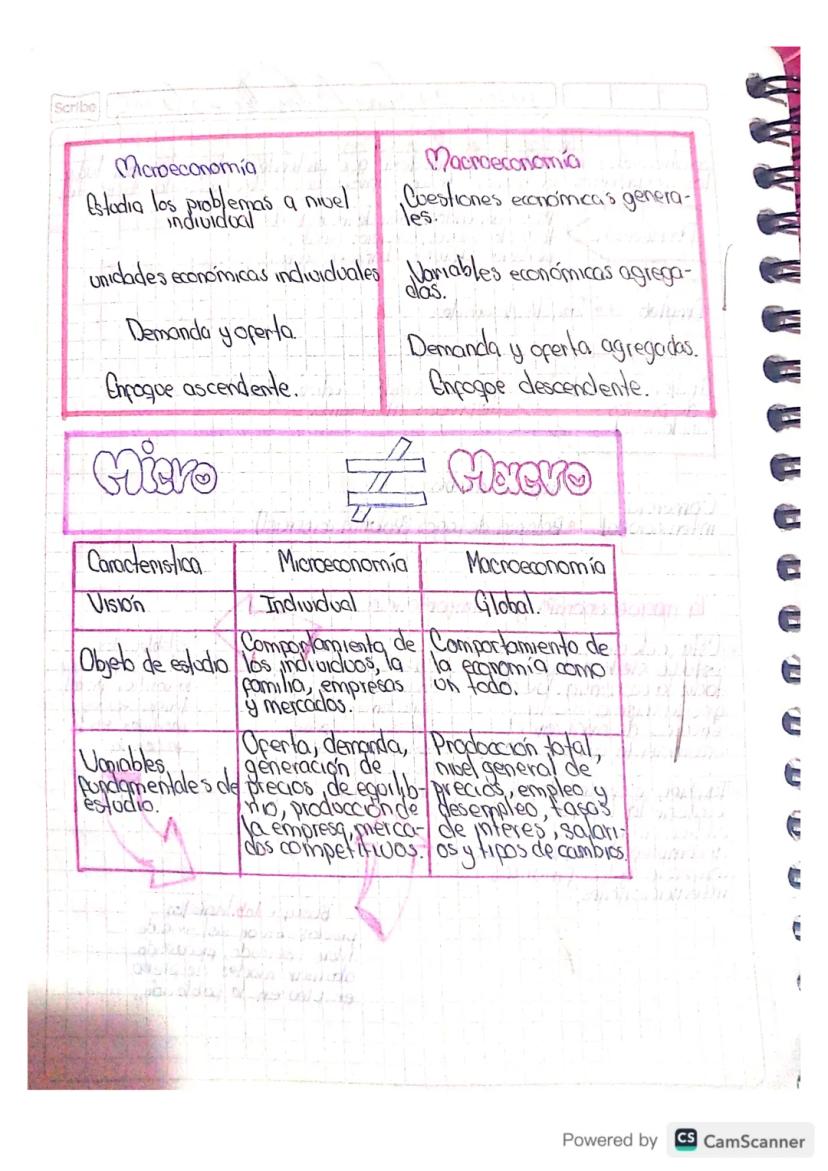 Scribe
Microeconomía
Estudia los problemas a nivel
individual
unidades económicas individuales
Demanda y oferta.
Enfoque ascendente.
Macroeconomía
Cuestiones económicas genera-
les.
Variables económicas agrega-
das.
Demanda y oferta agregadas.
Enfoque descendente.
Micro ≠ Macro
Caracteristica Microeconomía Macroeconomía
Visión Individual Global.
Objeto de estudio
Comportamiento de
los individuos, la
familia, empresas
y mercados.
Comportamiento de
la economía como
un todo.
Variables
fundamentales de
estudio.
Oferta, demanda,
generación de
precios de equilib-
rio, producción de
la empresa, merca-
dos competitivos.
Producción total,
nivel general de
precios, empleo y
desempleo, tasas
de interes, salari-
os y tipos de cambios.
Powered by CS CamScanner